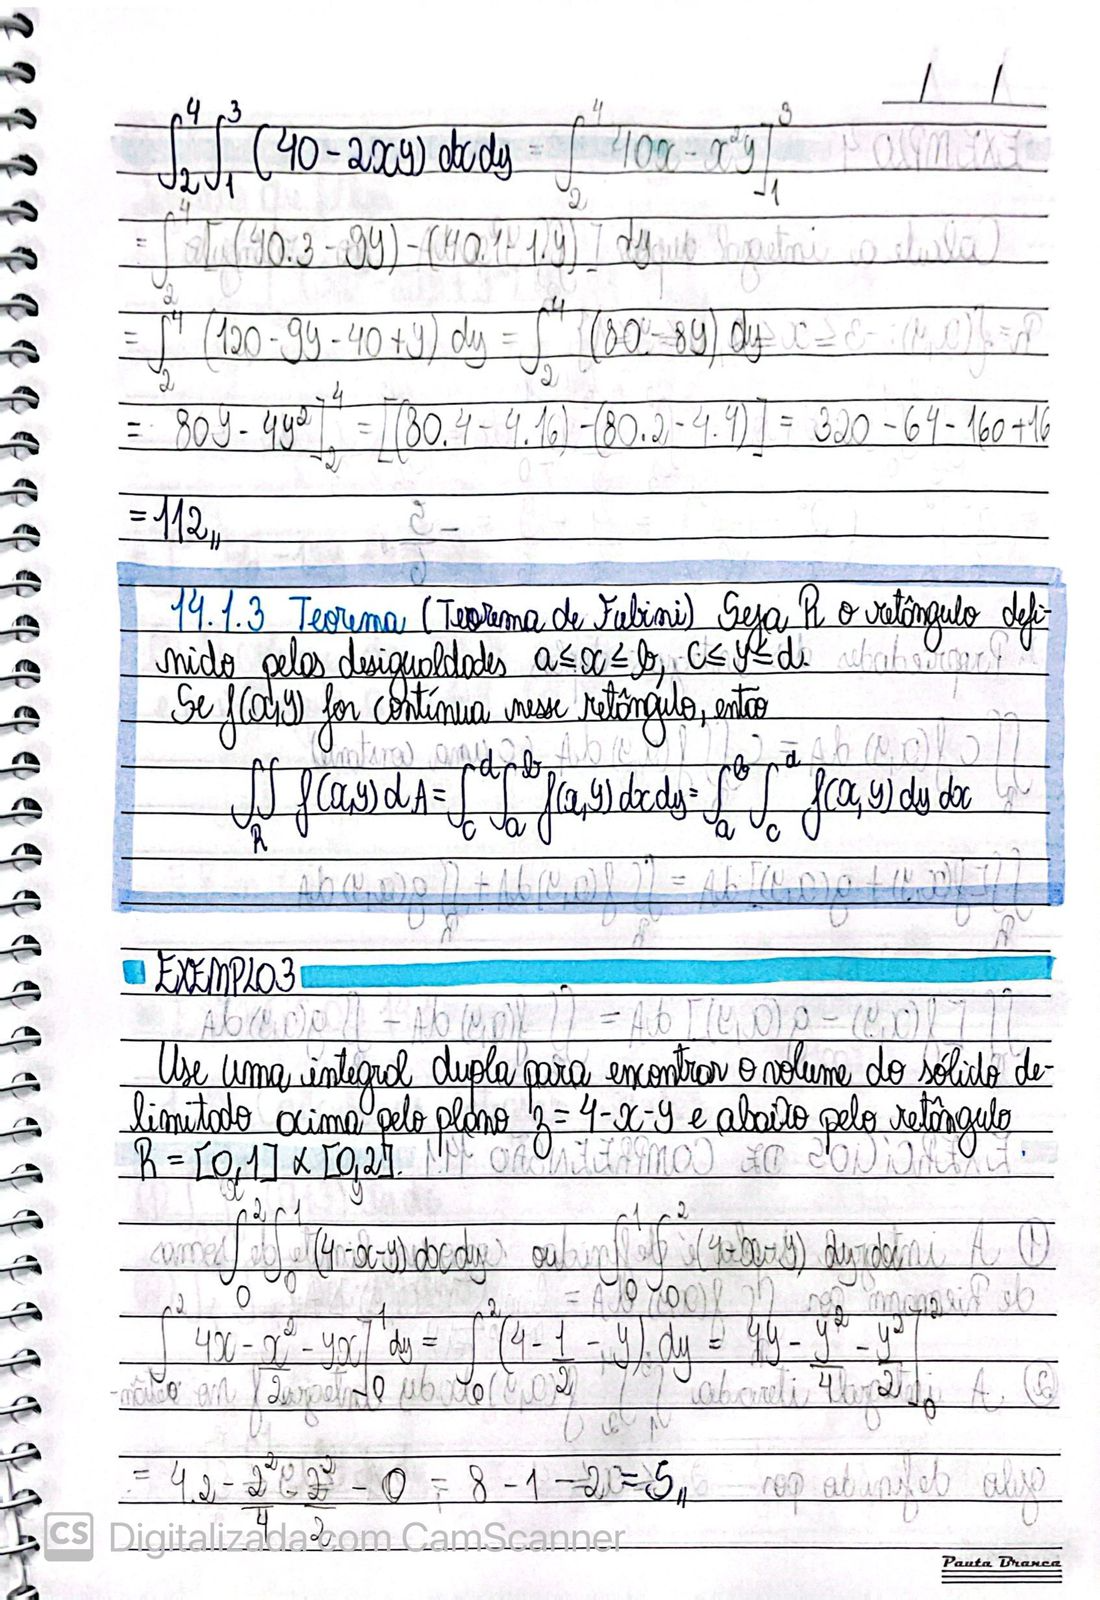 ∫₂⁴ ∫₁³ (40 - 2xy) dx dy = ∫₂⁴ 40x - x²y]₁³
= ∫₂⁴ [(40.3 - 9y) - (40.1 - 1.y)] dy
= ∫₂⁴ (120 - 9y - 40 + y) dy = ∫₂⁴ (80 - 8y) dy
= 80y - 4y²]₂⁴ = [(80.4 - 4.16) - (80.2 - 4.4)] = 320 - 64 - 160 + 16
= 112,,
14.1.3 Teorema (Teorema de Fubini) Seja R o retângulo defi-
nido pelas desigualdades a ≤ x ≤ b, c ≤ y ≤ d.
Se f(x,y) for contínua nesse retângulo, então
∬_R f(x,y) dA = ∫_c^d ∫_a^b f(x,y) dx dy = ∫_a^b ∫_c^d f(x,y) dy dx
EXEMPLO 3
Use uma integral dupla para encontrar o volume do sólido de-
limitado acima pelo plano z = 4-x-y e abaixo pelo retângulo
R = [0,1] x [0,2].
x y
∫₀² ∫₀¹ (4-x-y) dx dy ou ∫₀¹ ∫₀² (4-x-y) dy dx
∫₀² 4x - x²/2 - yx]₀¹ dy = ∫₀² (4 - 1/2 - y) dy = 4y - y²/4 - y²/2]₀²
= 4.2 - 2²/4 - 2²/2 - 0 = 8 - 1 - 2 = 5,,
CS Digitalizada com CamScanner
Pauta Branca